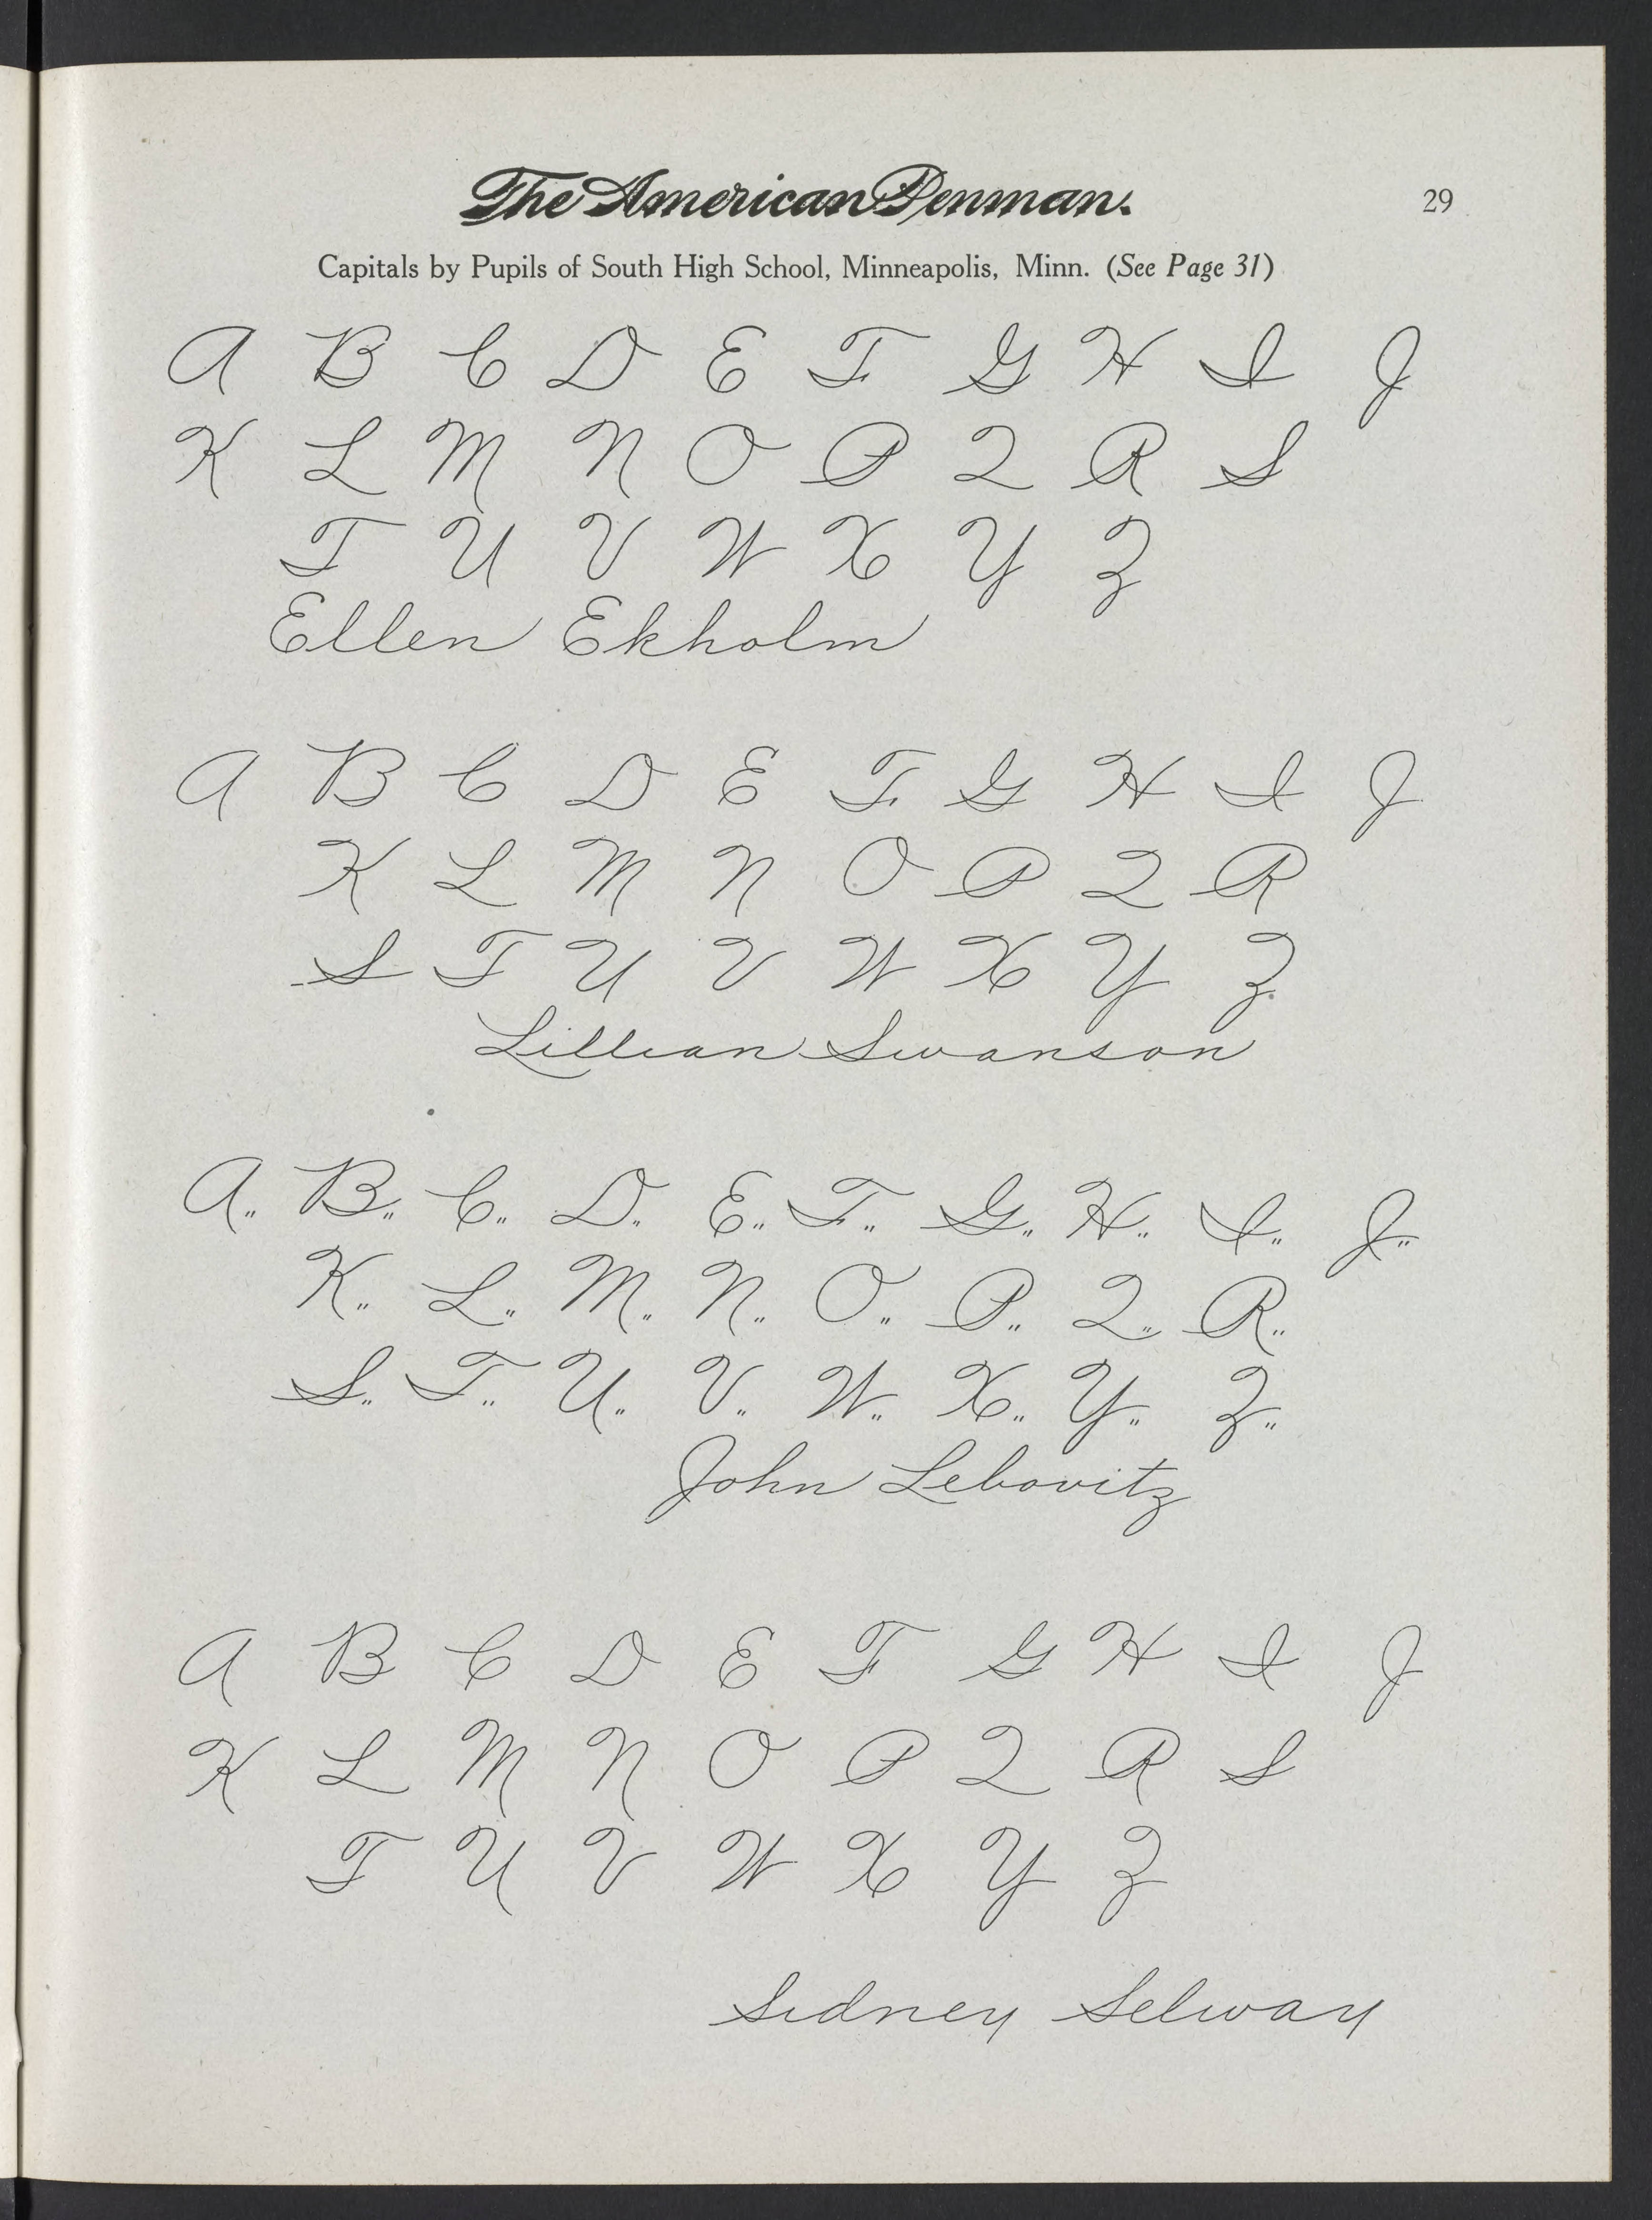 The American Penman.
29
Capitals by Pupils of South High School, Minneapolis, Minn. (See Page 31)
A B C D E F G H I J
K L M N O P Q R S
T U V W X Y Z
Ellen Ekholm
A B C D E F G H I J
K L M N O P Q R
S T U V W X Y Z
Lillian Swanson
A. B. C. D. E. F. G. H. I. J.
K. L. M. N. O. P. Q. R.
S. T. U. V. W. X. Y. Z.
John Lebovitz
A B C D E F G H I J
K L M N O P Q R S
T U V W X Y Z
Sidney Selway